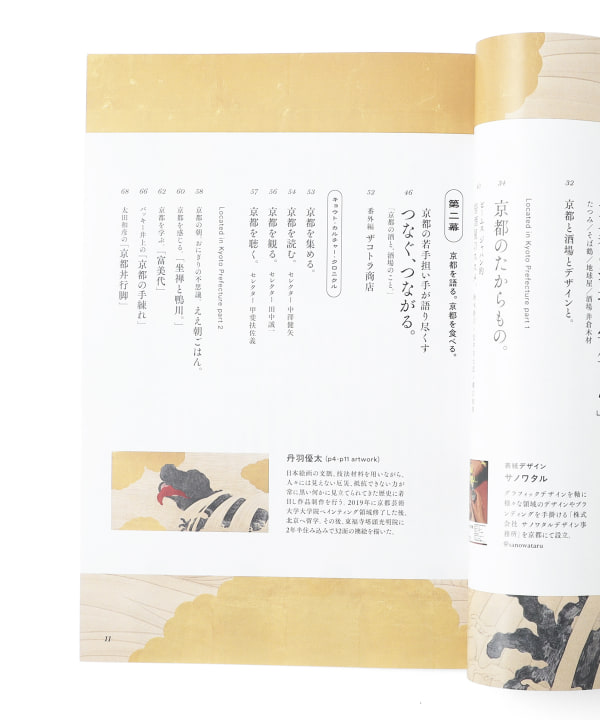 32
京都と酒場とデザインと。
たつみ／そば鶴／地球屋／酒場 井倉木材
Located in Kyoto Prefecture part 1
34
京都のたからもの。
第二幕
京都を語る。京都を食べる。
46
京都の若手担い手が語り尽くす
つなぐ、つながる。
「京都の酒と、酒場のこと」
52
番外編 ザコトラ商店
キョウト・カルチャー・クロニクル
53
京都を集める。
54
京都を読む。 セレクター 中澤健矢
56
京都を観る。 セレクター 田中誠一
57
京都を聴く。 セレクター 甲斐扶佐義
Located in Kyoto Prefecture part 2
58
京都の朝、おにぎりの不思議 ええ朝ごはん。
60
京都を感じる 「坐禅と鴨川。」
62
京都を学ぶ 「富美代」
66
バッキー井上の「京都の手練れ」
68
太田和彦の「京都丼行脚」
丹羽優太 (p4-p11 artwork)
日本絵画の文脈、技法材料を用いながら、
人々には見えない厄災、抵抗できない力が
常に黒い何かに見立てられてきた歴史に着
目し作品制作を行う。2019年に京都芸術
大学大学院ペインティング領域修了した後、
北京へ留学。その後、東福寺塔頭光明院に
2年半住み込みで32面の襖絵を描いた。
表紙デザイン
サノワタル
グラフィックデザインを軸に
様々な領域のデザインやブラ
ンディングを手掛ける「株式
会社 サノワタルデザイン事
務所」を京都にて設立。
@sanowataru
11